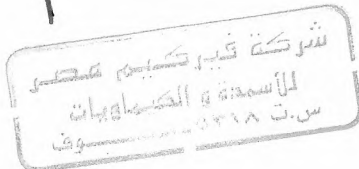 شركة فيركيم مصر
للأسمدة و الكيماويات
س.ت ٥٣١٨ سوف